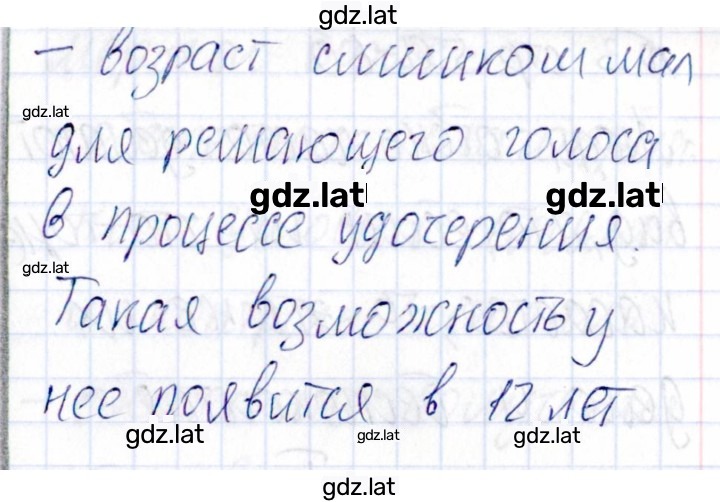 gdz.lat
– возраст слишком мал
gdz.lat
для решающего голоса
gdz.lat gdz.lat
в процессе удочерения.
gdz.lat
Такая возможность у
нее появится в 12 лет
gdz.lat gdz.lat gdz.lat
gdz.lat